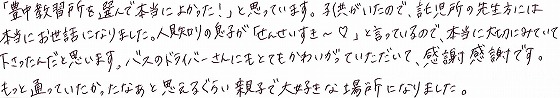 「豊中教習所を選んで本当によかった！」と思っています。子供がいたので、託児所の先生方には
本当にお世話になりました。人見知りの息子が「せんせいすき～♡」と言っているので、本当に大切にみていて
下さったんだと思います。バスのドライバーさんにもとてもかわいがっていただいて、感謝感謝です。
もっと通っていたかったなあと思えるぐらい親子で大好きな場所になりました。